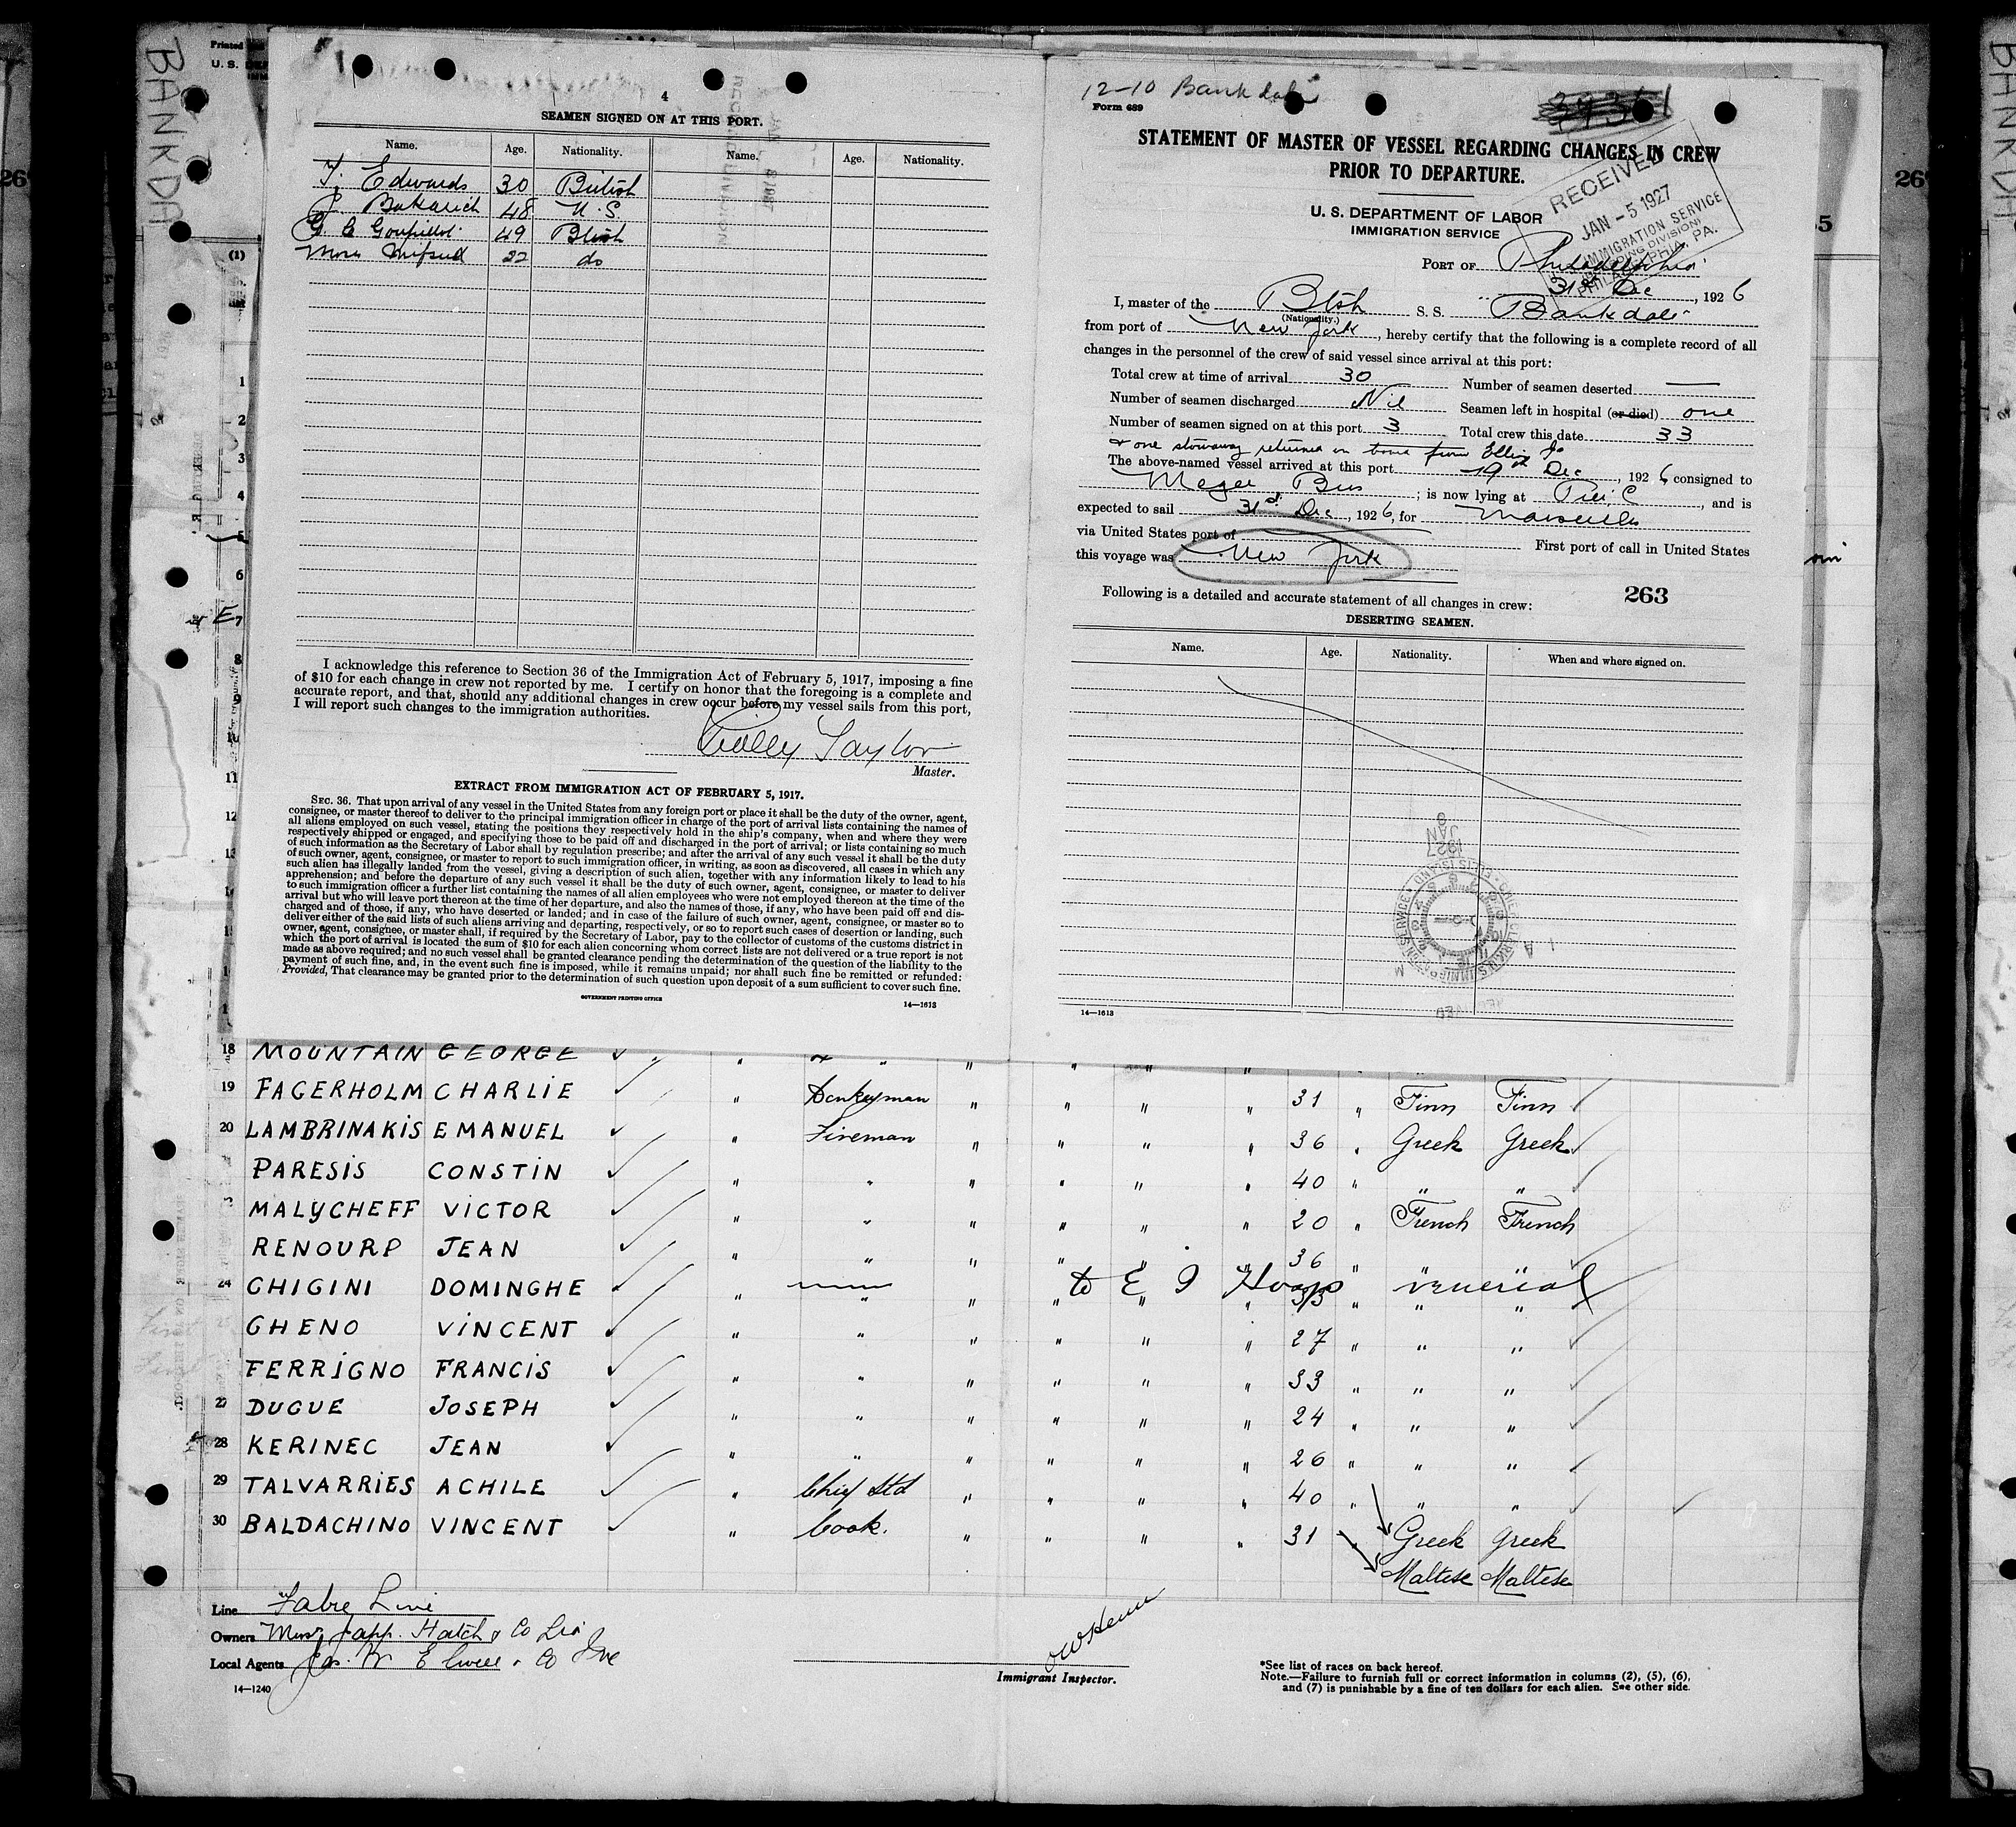 BANKDA
Printed
U. S.
4
SEAMEN SIGNED ON AT THIS PORT.
Name. Age. Nationality. Name. Age. Nationality.
Edwards 30 British
48 U. S
49 Btish
22 do
I acknowledge this reference to Section 36 of the Immigration Act of February 5, 1917, imposing a fine
of $10 for each change in crew not reported by me. I certify on honor that the foregoing is a complete and
accurate report, and that, should any additional changes in crew occur before my vessel sails from this port,
I will report such changes to the immigration authorities.
Taylor
Master.
EXTRACT FROM IMMIGRATION ACT OF FEBRUARY 5, 1917.
SEC. 36. That upon arrival of any vessel in the United States from any foreign port or place it shall be the duty of the owner, agent,
consignee, or master thereof to deliver to the principal immigration officer in charge of the port of arrival lists containing the names of
all aliens employed on such vessel, stating the positions they respectively hold in the ship's company, when and where they were
respectively shipped or engaged, and specifying those to be paid off and discharged in the port of arrival; or lists containing so much
of such information as the Secretary of Labor shall by regulation prescribe; and after the arrival of any such vessel it shall be the duty
of such owner, agent, consignee, or master to report to such immigration officer, in writing, as soon as discovered, all cases in which any
such alien has illegally landed from the vessel, giving a description of such alien, together with any information likely to lead to his
apprehension; and before the departure of any such vessel it shall be the duty of such owner, agent, consignee, or master to deliver
to such immigration officer a further list containing the names of all alien employees who were not employed thereon at the time of the
arrival but who will leave port thereon at the time of her departure, and also the names of those, if any, who have been paid off and dis-
charged and of those, if any, who have deserted or landed; and in case of the failure of such owner, agent, consignee, or master so to
deliver either of the said lists of such aliens arriving and departing, respectively, or so to report such cases of desertion or landing, such
owner, agent, consignee, or master shall, if required by the Secretary of Labor, pay to the collector of customs of the customs district in
which the port of arrival is located the sum of $10 for each alien concerning whom correct lists are not delivered or a true report is not
made as above required; and no such vessel shall be granted clearance pending the determination of the question of the liability to the
payment of such fine, and, in the event such fine is imposed, while it remains unpaid; nor shall such fine be remitted or refunded:
Provided, That clearance may be granted prior to the determination of such question upon deposit of a sum sufficient to cover such fine.
GOVERNMENT PRINTING OFFICE 14—1613
12-10 Bankdale
Form 689
STATEMENT OF MASTER OF VESSEL REGARDING CHANGES IN CREW
PRIOR TO DEPARTURE.
RECEIVED
JAN - 5 1927
U. S. IMMIGRATION SERVICE
PHILADELPHIA, PA.
U. S. DEPARTMENT OF LABOR
IMMIGRATION SERVICE
PORT OF Philadelphia
31st Dec, 1926
I, master of the Btsh S. S. "Bankdale"
(Nationality.)
from port of New York, hereby certify that the following is a complete record of all
changes in the personnel of the crew of said vessel since arrival at this port:
Total crew at time of arrival 30 Number of seamen deserted —
Number of seamen discharged Nil Seamen left in hospital (or died) one
Number of seamen signed on at this port 3 Total crew this date 33
& one stowaway returned on board from Ellis Is
The above-named vessel arrived at this port 19th Dec, 1926, consigned to
; is now lying at Pier C, and is
expected to sail 31st Dec, 1926, for Marseilles
via United States port of First port of call in United States
this voyage was New York
263
Following is a detailed and accurate statement of all changes in crew:
DESERTING SEAMEN.
Name. Age. Nationality. When and where signed on.
1927
JAN
14—1613
18 MOUNTAIN GEORGE " "
19 FAGERHOLM CHARLIE " Donkeyman " " " " 31 " Finn Finn
20 LAMBRINAKIS EMANUEL " Fireman " " " " 36 " Greek Greek
PARESIS CONSTIN " " " " " " 40 " " "
MALYCHEFF VICTOR " " " " " " 20 " French French
RENOURP JEAN " " " " 36 " "
24 CHIGINI DOMINGHE " " " " " " 33 " " "
to E I Hosp venerial
GHENO VINCENT " " " " " " 27 " " "
FERRIGNO FRANCIS " " " " " " 33 " " "
27 DUGUE JOSEPH " " " " " " 24 " " "
28 KERINEC JEAN " " " " " " 26 " " "
29 TALVARRIES ACHILE " Chief Std " " " " 40 " " "
30 BALDACHINO VINCENT " Cook. " " " " 31 " Greek Greek
Maltese Maltese
Line Fabre Line
Owners Messrs Japp. Hatch & Co Ltd
Local Agents Jas. W Elwell & Co Inc
14—1240
Immigrant Inspector.
*See list of races on back hereof.
Note.—Failure to furnish full or correct information in columns (2), (5), (6),
and (7) is punishable by a fine of ten dollars for each alien. See other side.